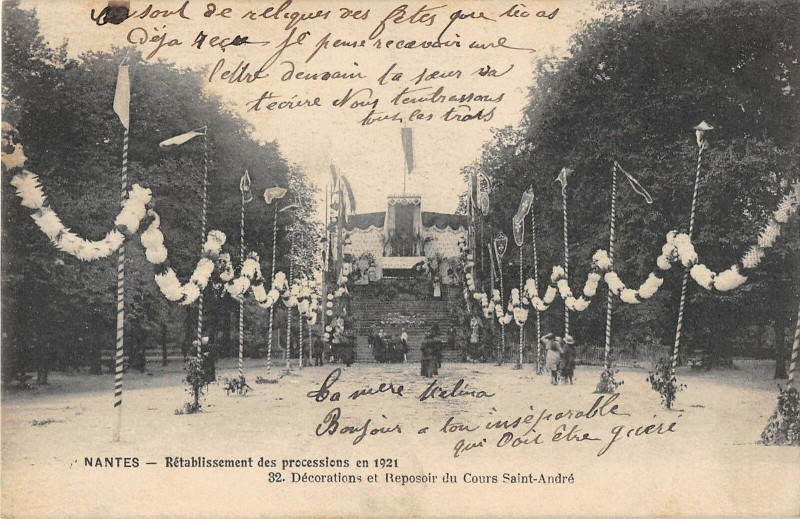 sont de reliques des fêtes que tu as
Déja reçu Je pense recevoir une
lettre demain ta sœur va
t'ecrire Nous tembrassons
tous les trois
ta mere Mélina
Bonjour a ton inséparable
qui Doit être guéri
NANTES — Rétablissement des processions en 1921
32. Décorations et Reposoir du Cours Saint-André